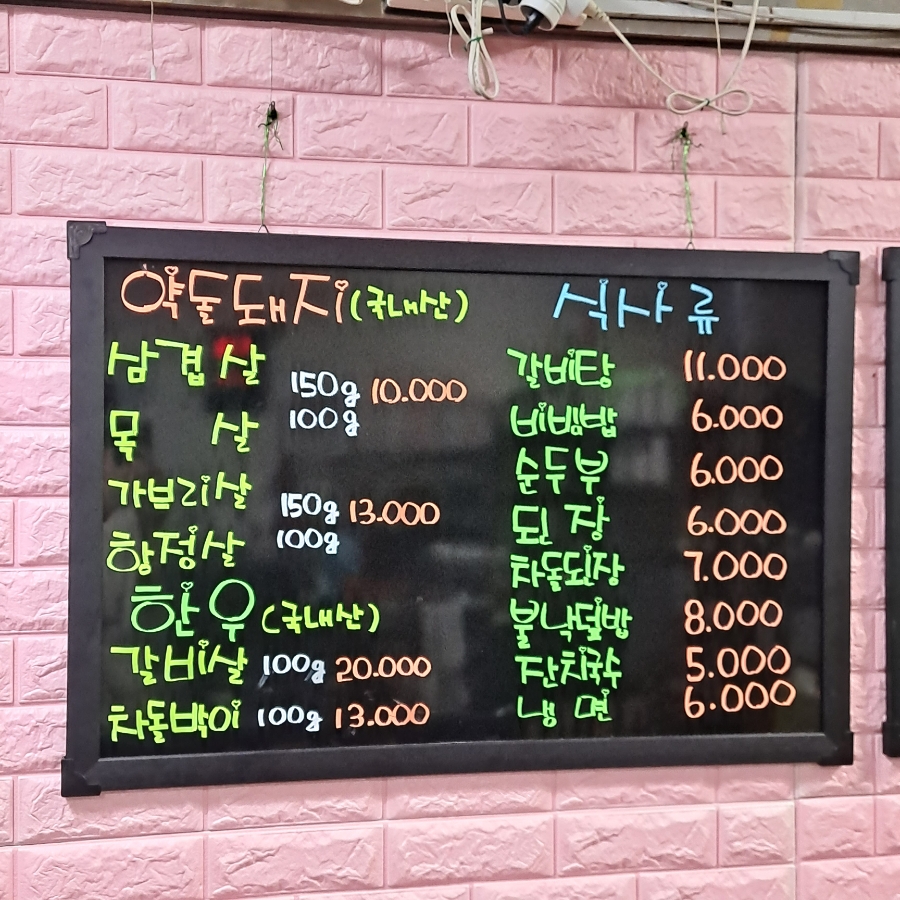 약돌돼지(국내산)
삼겹살
150g 10.000
100g
목 살
가브리살
150g 13.000
100g
항정살
한우(국내산)
갈비살 100g 20.000
차돌박이 100g 13.000
식사류
갈비탕 11.000
비빔밥 6.000
순두부 6.000
된장 6.000
차돌된장 7.000
불낙덮밥 8.000
잔치국수 5.000
냉면 6.000